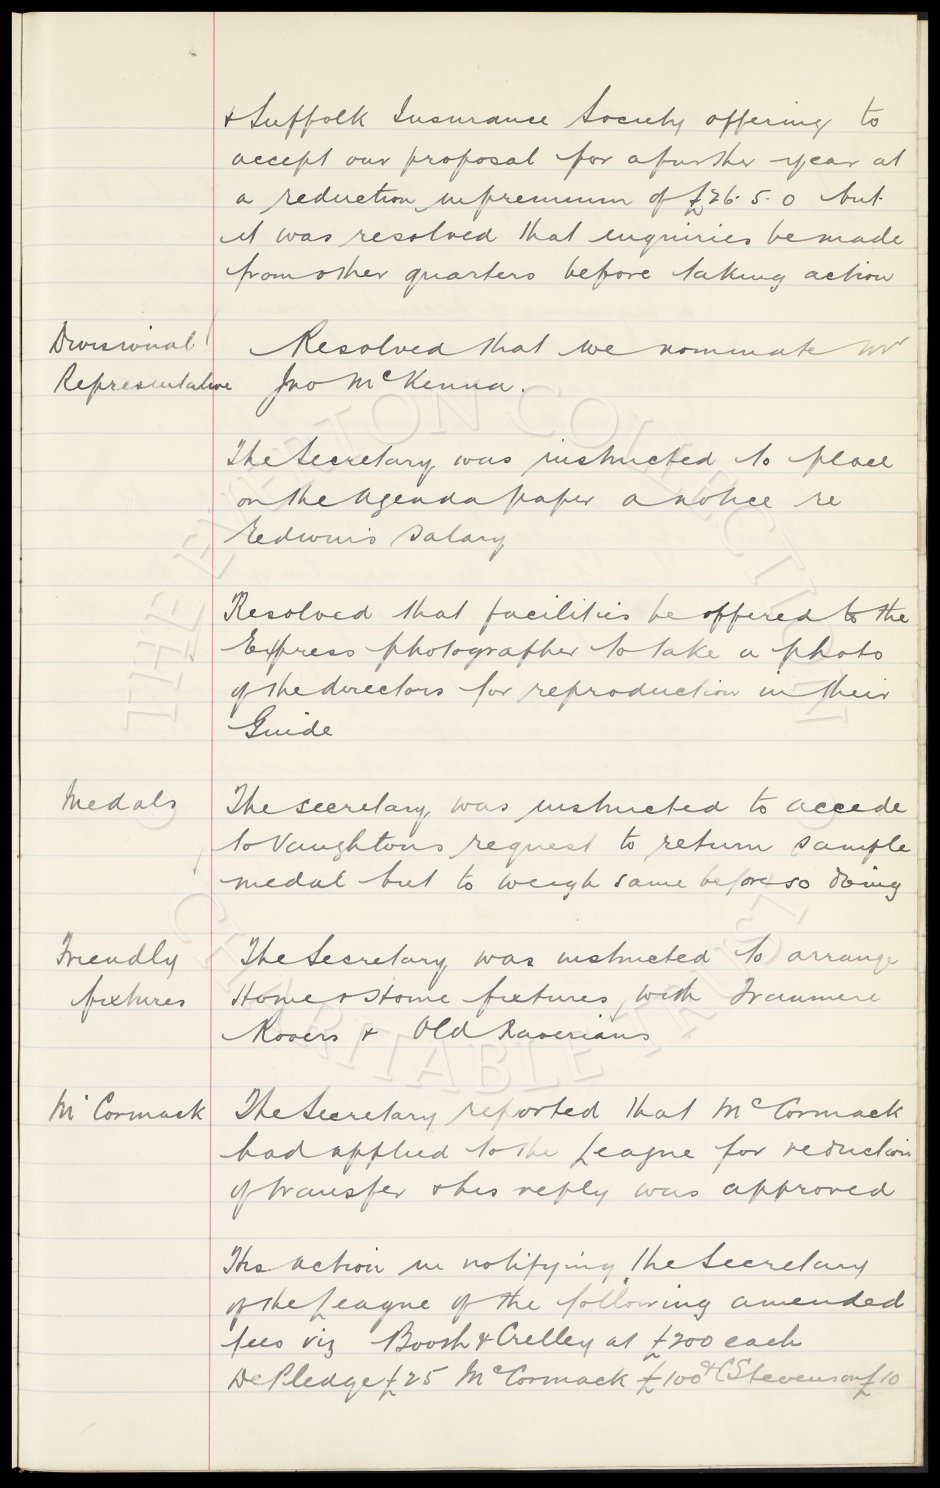 & Suffolk Insurance Society offering to
accept our proposal for a further year at
a reduction in premium of £26.5.0 but
it was resolved that enquiries be made
from other quarters before taking action
Divisional Resolved that we nominate Mr
Representative Jno McKenna.
The Secretary was instructed to place
on the Agenda paper a notice re
Salary
Resolved that facilities be offered to the
Express photographer to take a photo
of the directors for reproduction in their
Guide
Medals The secretary was instructed to accede
to Vaughtons request to return sample
medal but to weigh same before so doing
Friendly The Secretary was instructed to arrange
fixtures Home & Home fixtures with Tranmere
Rovers & Old Xaverians
McCormack The Secretary reported that McCormack
had applied to the League for reduction
of transfer & his reply was approved
His action in notifying the Secretary
of the League of the following amended
fees viz Booth & Crelley at £200 each
DePledge £25 McCormack £100 & C Stevenson £10
THE EVERTON COLLECTION
CHARITABLE TRUST